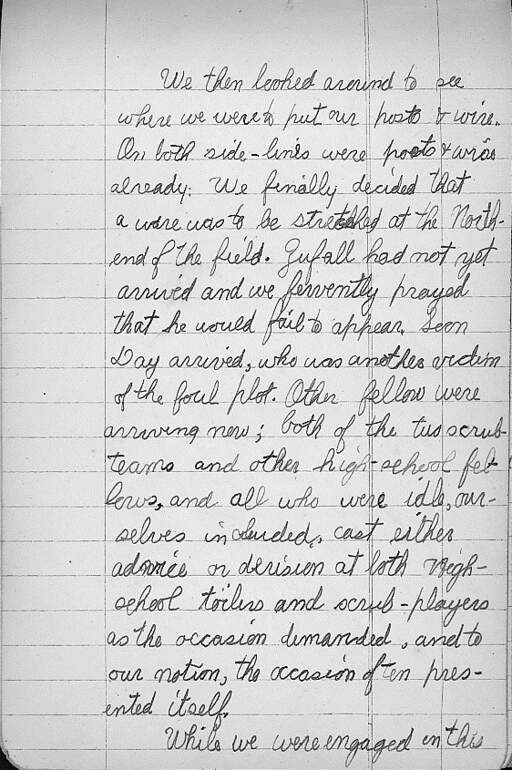 We then looked around to see
where we were to put our posts & wire.
On both side-lines were posts & wire
already. We finally decided that
a wire was to be stretched at the North-
end of the field. Gufall had not yet
arrived and we fervently prayed
that he would fail to appear. Soon
Day arrived, who was another victim
of the foul plot. Other fellow were
arriving now; both of the two scrub-
teams and other high-school fel-
lows, and all who were idle, our-
selves included, cast either
advice or derision at both High-
school toilers and scrub-players
as the occasion demanded, and to
our notion, the occasion often pres-
ented itself.
While we were engaged in this